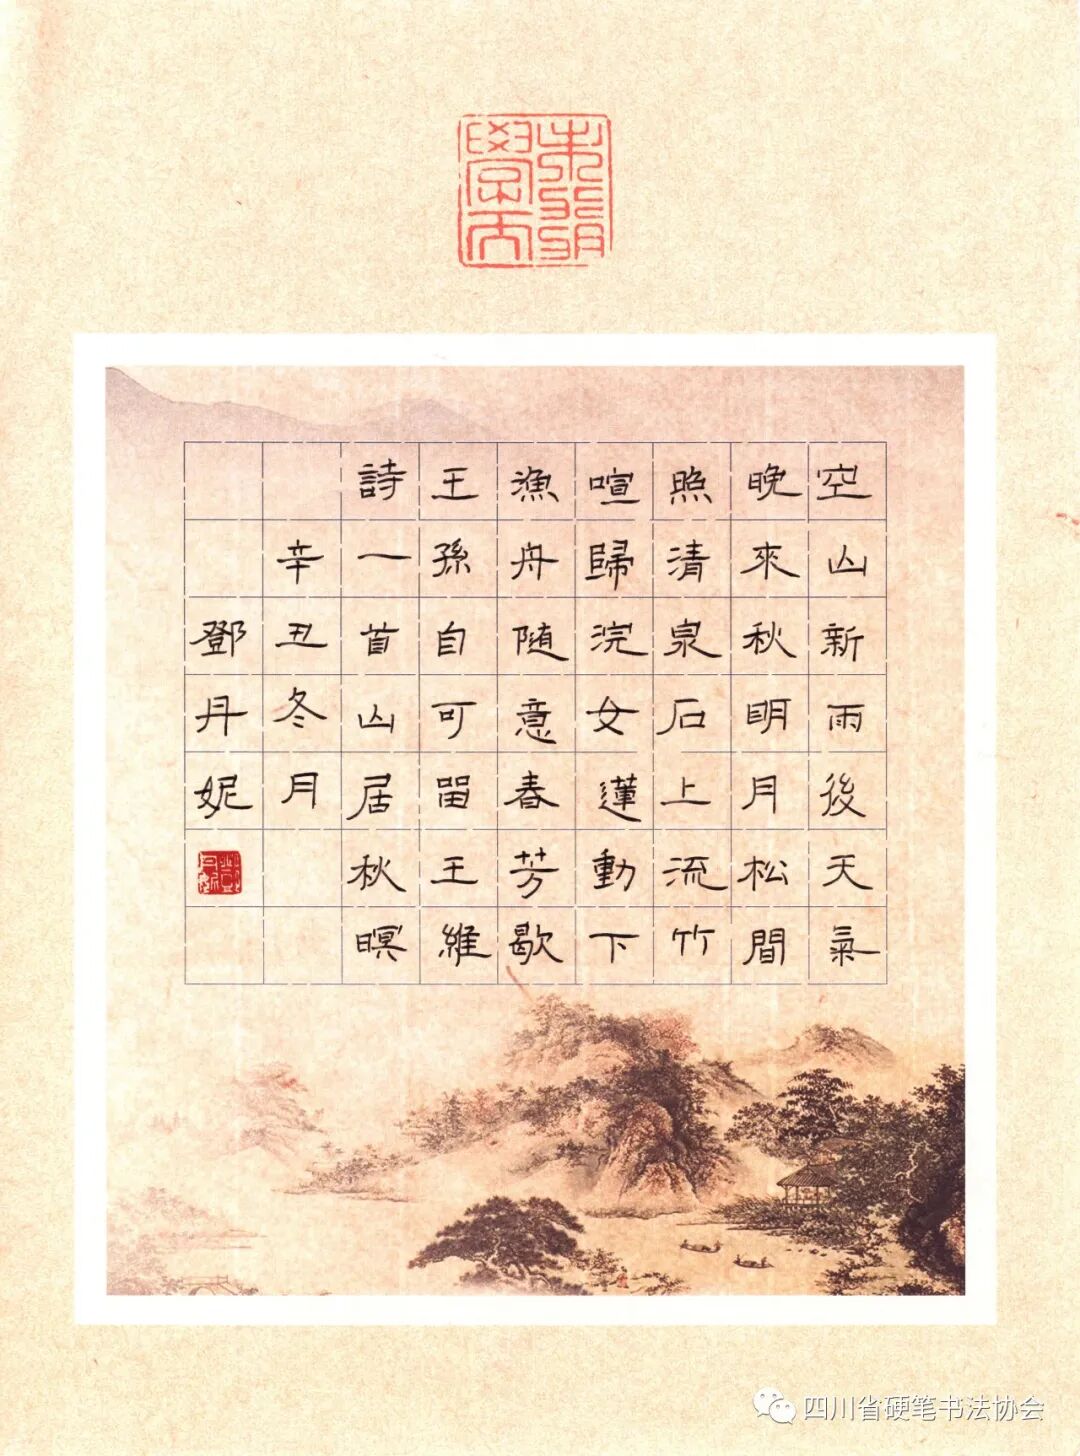 空山新雨後天氣
晚來秋明月松間
照清泉石上流竹
喧歸浣女蓮動下
漁舟随意春芳歇
王孫自可留王維
詩一首山居秋暝
辛丑冬月
鄧丹妮
四川省硬笔书法协会